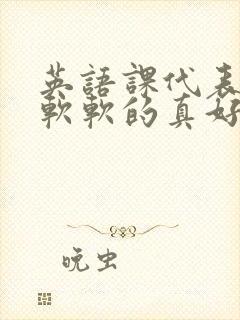 英語課代表
軟軟的真好
晚虫